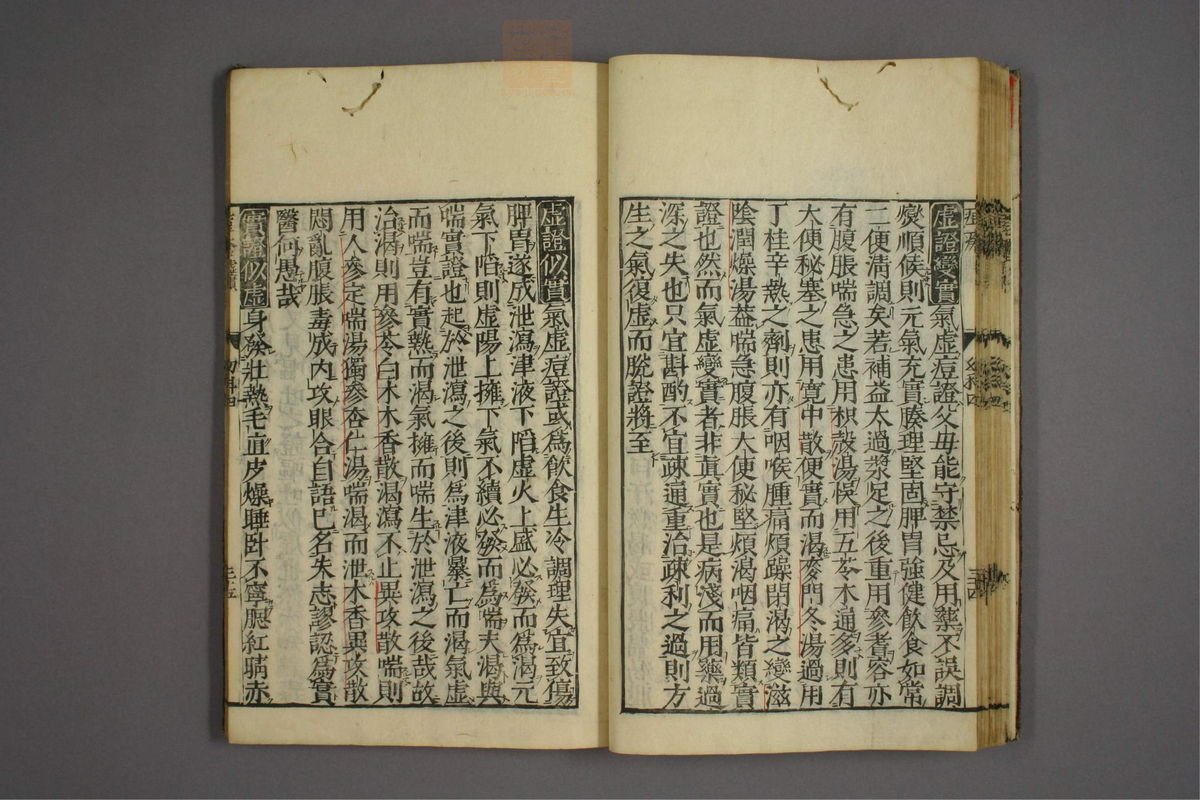 虛證變實氣虛痘證父毋能守禁忌及用藥不誤調
燮順候則元氣充實腠理堅固脾胃強健飲食如常
二便淸調矣若補益太過漿足之後重用參耆容亦
有腹脹喘急之患用枳殼湯悞用五苓木通多則有
大便秘塞之患用寬中散便實而渴麥門冬湯過用
丁桂辛熱之劑則亦有咽喉腫痛煩躁閉渴之變滋
陰潤燥湯葢喘急腹脹大便秘堅煩渴咽痛皆類實
證也然而氣虛變實者非眞實也是病淺而用藥過
深之失也只宜斟酌不宜疎通重治疎利之過則方
生之氣復虛而脫證將至
虛證似實氣虛痘證或爲飲食生冷調理失宜致傷
脾胃遂成泄瀉津液下陷虛火上盛必發而爲渴元
氣下陷則虛陽上擁下氣不續必發而爲喘夫渴與
喘實證也起於泄瀉之後則爲津液暴亡而渴氣虛
而喘豈有實熱而渴氣擁而喘生於泄瀉之後哉故
治渴則用參苓白朮木香散渴瀉不止異攻散喘則
用人參定喘湯獨參杏仁湯喘渴而泄木香異攻散
悶亂腹脹毒成內攻眼合自語已名朱志謬認爲實
醫何愚哉
實證似虛身發壯熱毛直皮燥睡臥不寧腮紅睛赤
幼科四
三十四
幼科四
三十五